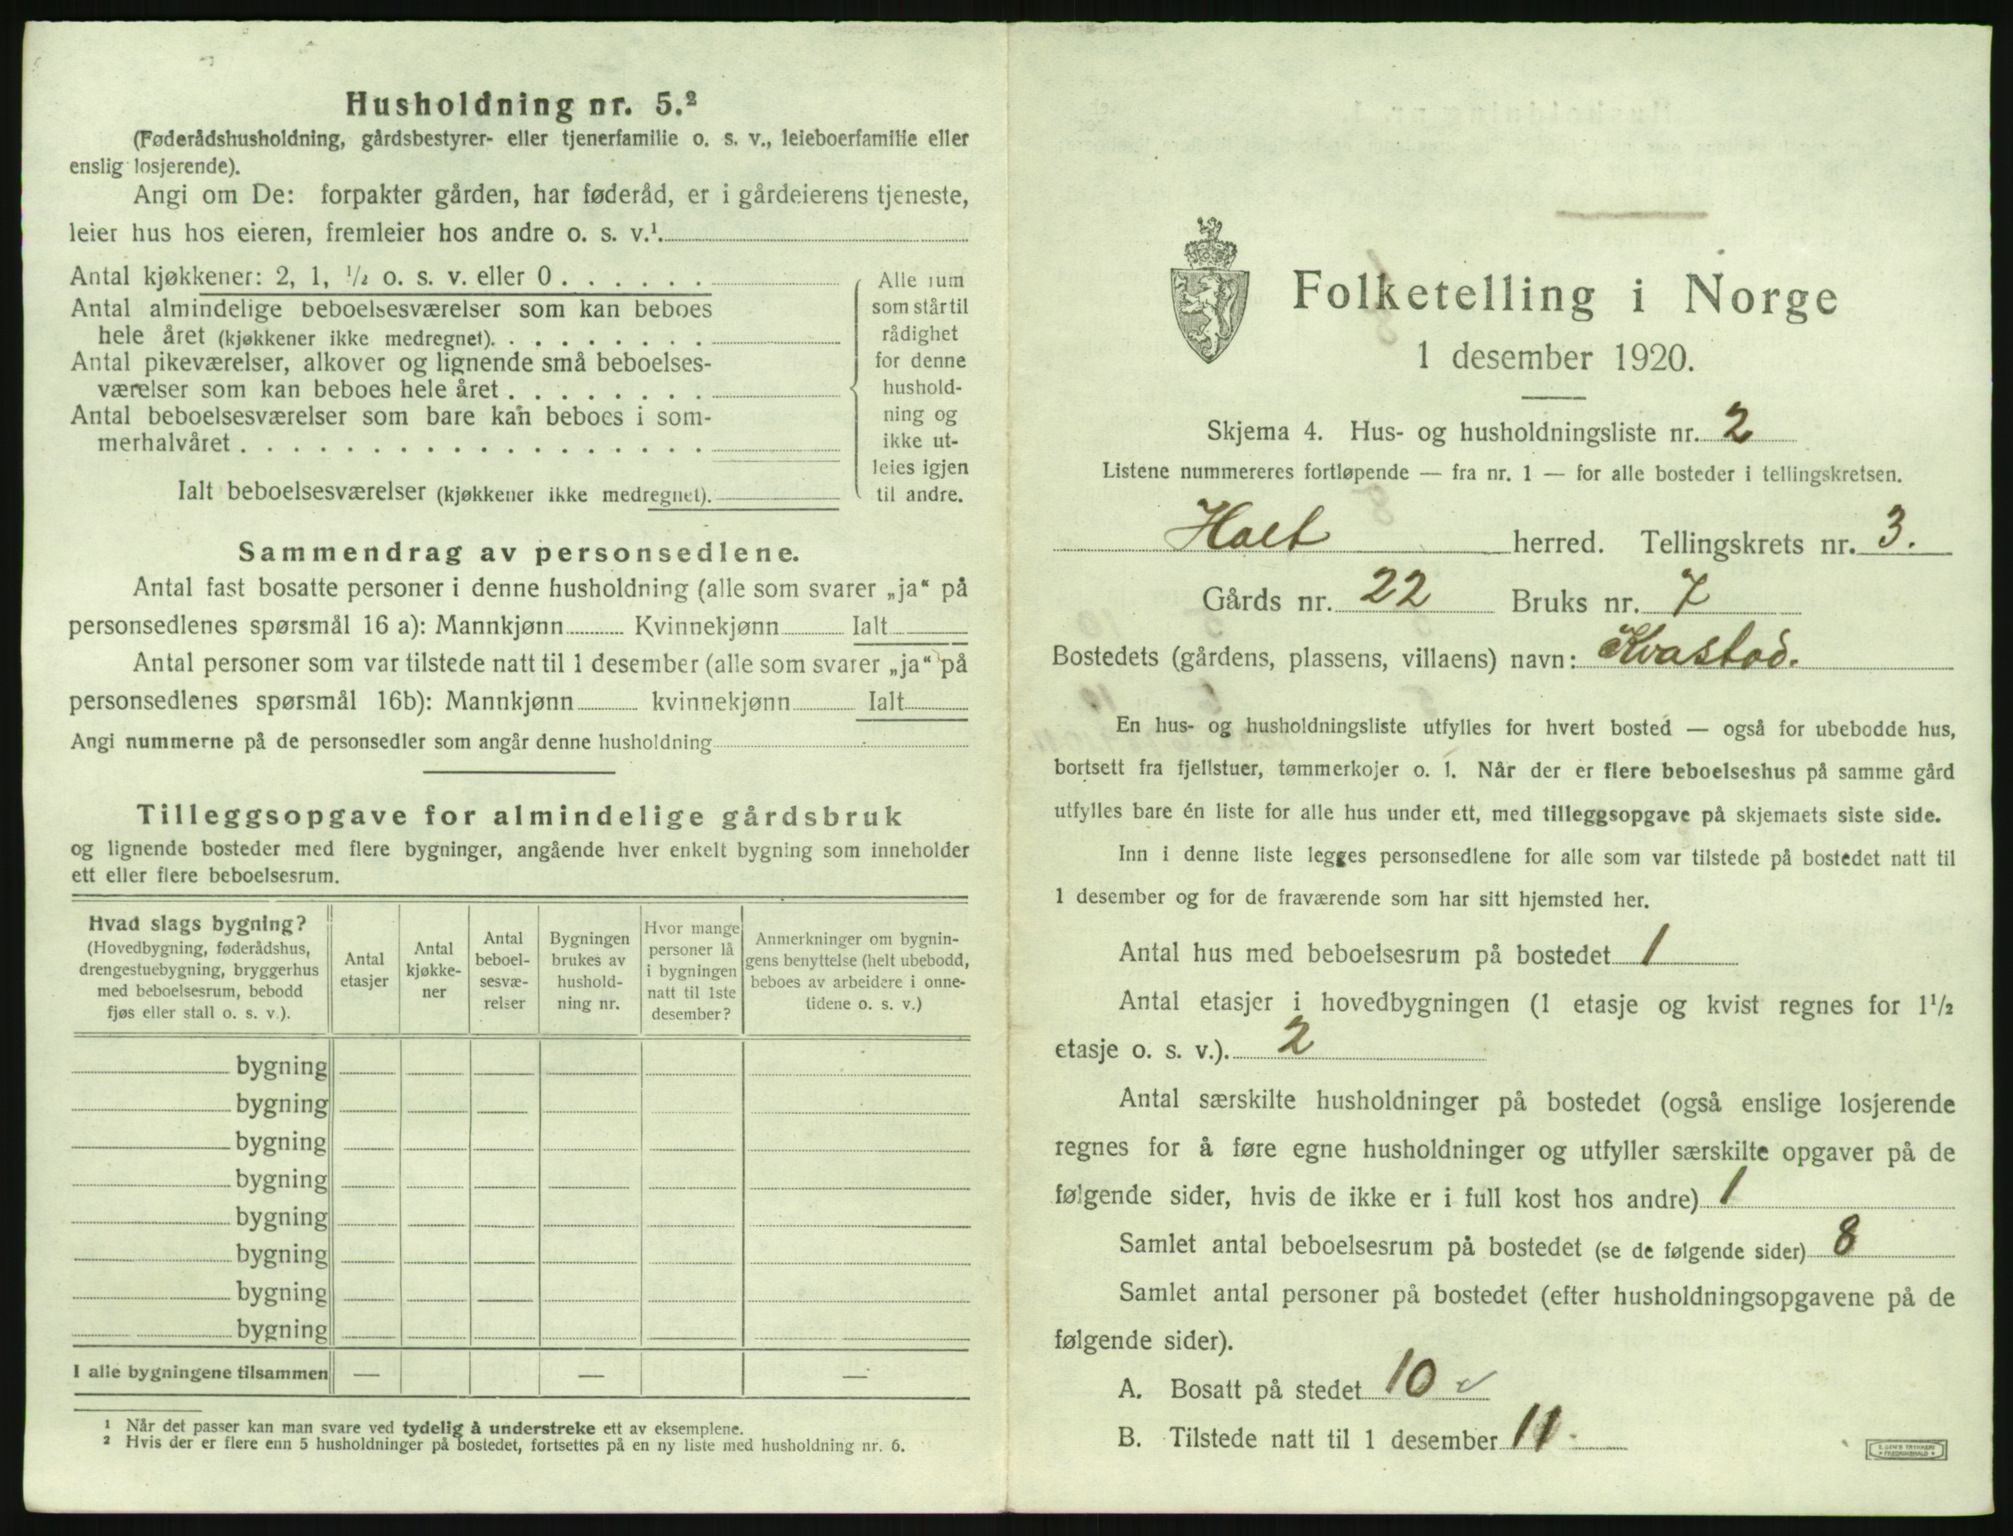 Husholdning nr. 5.²
(Føderådshusholdning, gårdsbestyrer- eller tjenerfamilie o. s. v., leieboerfamilie eller
enslig losjerende).
Angi om De: forpakter gården, har føderåd, er i gårdeierens tjeneste,
leier hus hos eieren, fremleier hos andre o. s. v.¹.
Antal kjøkkener: 2, 1, ½ o. s. v. eller 0 . . . . . .
Antal almindelige beboelsesværelser som kan beboes
hele året (kjøkkener ikke medregnet). . . . . . . . .
Antal pikeværelser, alkover og lignende små beboelses-
værelser som kan beboes hele året . . . . . . . .
Antal beboelsesværelser som bare kan beboes i som-
merhalvåret . . . . . . . . . . . . . . . . . .
Ialt beboelsesværelser (kjøkkener ikke medregnet).
Alle rum
som står til
rådighet
for denne
hushold-
ning og
ikke ut-
leies igjen
til andre.
Sammendrag av personsedlene.
Antal fast bosatte personer i denne husholdning (alle som svarer „ja“ på
personsedlenes spørsmål 16 a): Mannkjønn Kvinnekjønn Ialt
Antal personer som var tilstede natt til 1 desember (alle som svarer „ja“ på
personsedlenes spørsmål 16b): Mannkjønn kvinnekjønn Ialt
Angi nummerne på de personsedler som angår denne husholdning
Tilleggsopgave for almindelige gårdsbruk
og lignende bosteder med flere bygninger, angående hver enkelt bygning som inneholder
ett eller flere beboelsesrum.
Hvad slags bygning?
(Hovedbygning, føderådshus,
drengestuebygning, bryggerhus
med beboelsesrum, bebodd
fjøs eller stall o. s. v.).
Antal
etasjer
Antal
kjøkke-
ner
Antal
beboel-
sesvæ-
relser
Bygningen
brukes av
hushold-
ning nr.
Hvor mange
personer lå
i bygningen
natt til 1ste
desember?
Anmerkninger om bygnin-
gens benyttelse (helt ubebodd,
beboes av arbeidere i onne-
tidene o. s. v.)
bygning
bygning
bygning
bygning
bygning
bygning
bygning
bygning
I alle bygningene tilsammen — — —
¹ Når det passer kan man svare ved tydelig å understreke ett av eksemplene.
² Hvis der er flere enn 5 husholdninger på bostedet, fortsettes på en ny liste med husholdning nr. 6.
Folketelling i Norge
1 desember 1920.
Skjema 4. Hus- og husholdningsliste nr. 2
Listene nummereres fortløpende — fra nr. 1 — for alle bosteder i tellingskretsen.
Holt herred. Tellingskrets nr. 3.
Gårds nr. 22 Bruks nr. 7
Bostedets (gårdens, plassens, villaens) navn: Kvastad.
En hus- og husholdningsliste utfylles for hvert bosted — også for ubebodde hus,
bortsett fra fjellstuer, tømmerkojer o. l. Når der er flere beboelseshus på samme gård
utfylles bare én liste for alle hus under ett, med tilleggsopgave på skjemaets siste side.
Inn i denne liste legges personsedlene for alle som var tilstede på bostedet natt til
1 desember og for de fraværende som har sitt hjemsted her.
Antal hus med beboelsesrum på bostedet 1
Antal etasjer i hovedbygningen (1 etasje og kvist regnes for 1½
etasje o. s. v.). 2
Antal særskilte husholdninger på bostedet (også enslige losjerende
regnes for å føre egne husholdninger og utfyller særskilte opgaver på de
følgende sider, hvis de ikke er i full kost hos andre) 1
Samlet antal beboelsesrum på bostedet (se de følgende sider) 8
Samlet antal personer på bostedet (efter husholdningsopgavene på de
følgende sider).
A. Bosatt på stedet 10 ✓
B. Tilstede natt til 1 desember 11.